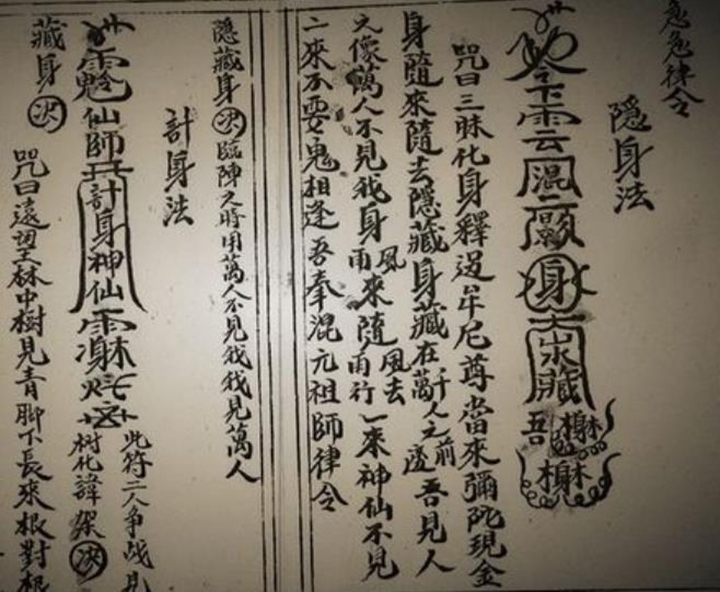 急急律令
隐身法
下雲云混二 身 藏 吾
咒曰三昧化身釋迦牟尼尊當來彌陀現金
身隨來隨去隱藏身藏在千萬人之前後吾見人
之像萬人不見我身風雨來隨風去雨行一來神仙不見
二來不要鬼相逢吾奉混元祖師律令
隐藏身決臨陣之時用萬人不見我我見萬人
計身法
仙師 計身神仙
此符二人争战見
树化諱 決
藏身決
咒曰遠望林中樹見青脚下長來根對根